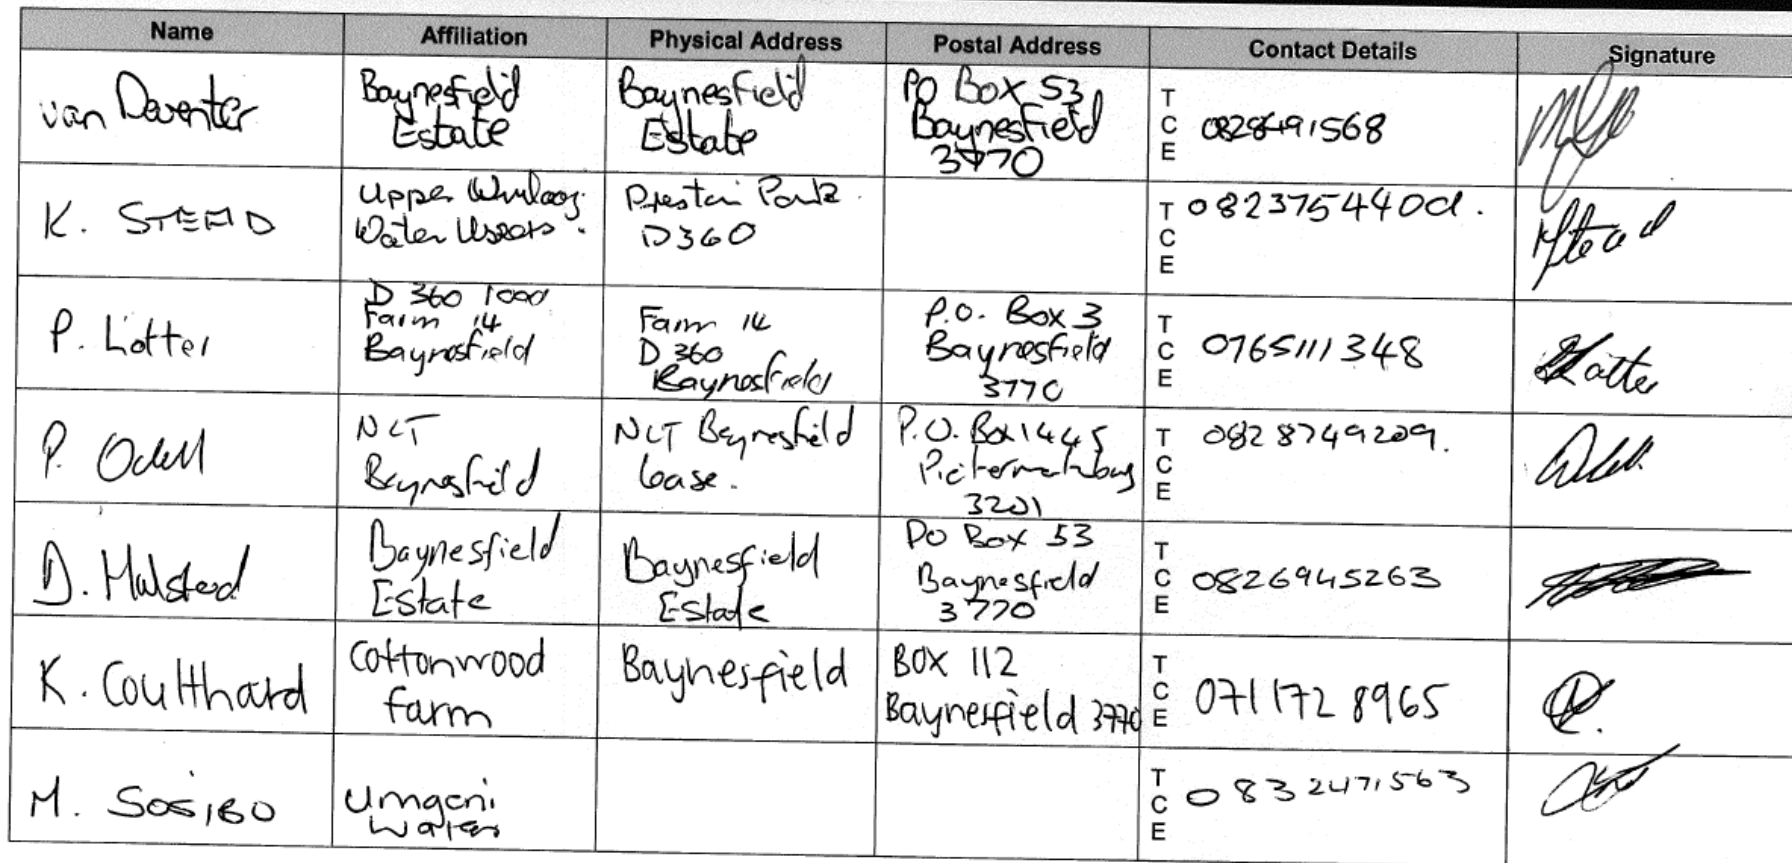 Name Affiliation Physical Address Postal Address Contact Details Signature
van Deventer
Baynesfield
Estate
Baynesfield
Estate
PO Box 53
Baynesfield
3770
T
C
E
0828491568
K. STEAD
Upper
Water Users.
Preston Park
D360
T
C
E
P. Lotter
D 360 1000
Farm 14
Baynesfield
Farm 14
D 360
Baynesfield
P.O. Box 3
Baynesfield
3770
T
C
E
0765111348
P. Odell
NCT
Baynesfield
NCT Baynesfield
base.
P.O. Box 1445
Pietermaritzburg
3201
T
C
E
0828749209.
D. Halstead
Baynesfield
Estate
Baynesfield
Estate
PO Box 53
Baynesfield
3770
T
C
E
0826945263
K. Coulthard
Cottonwood
farm
Baynesfield
BOX 112
Baynesfield 3770
T
C
E
071172 8965
M. SOSIBO
Umgeni
Water
T
C
E
0832471563